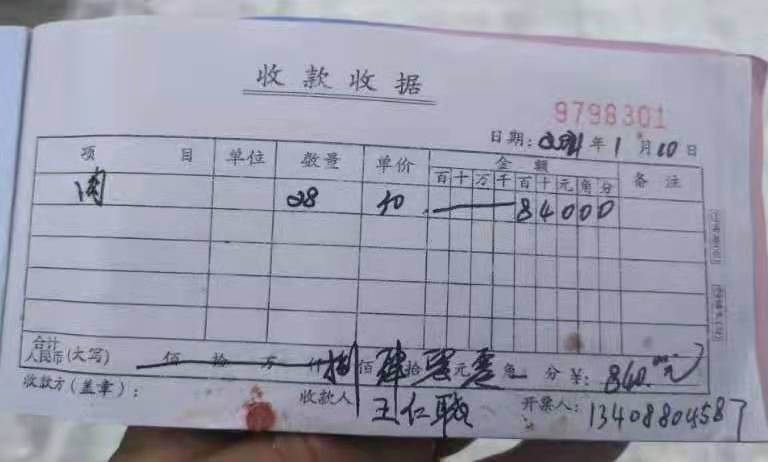 收款收据
9798301
日期: 2021年1月10日
项目 单位 数量 单价 金额 备注
百十万千百十元角分
肉 28 30 84000
合计
人民币(大写) 佰拾万仟捌佰肆拾零元零角 分 ¥: 840.00元
收款方(盖章): 收款人 王仁聪 开票人: 13408804587